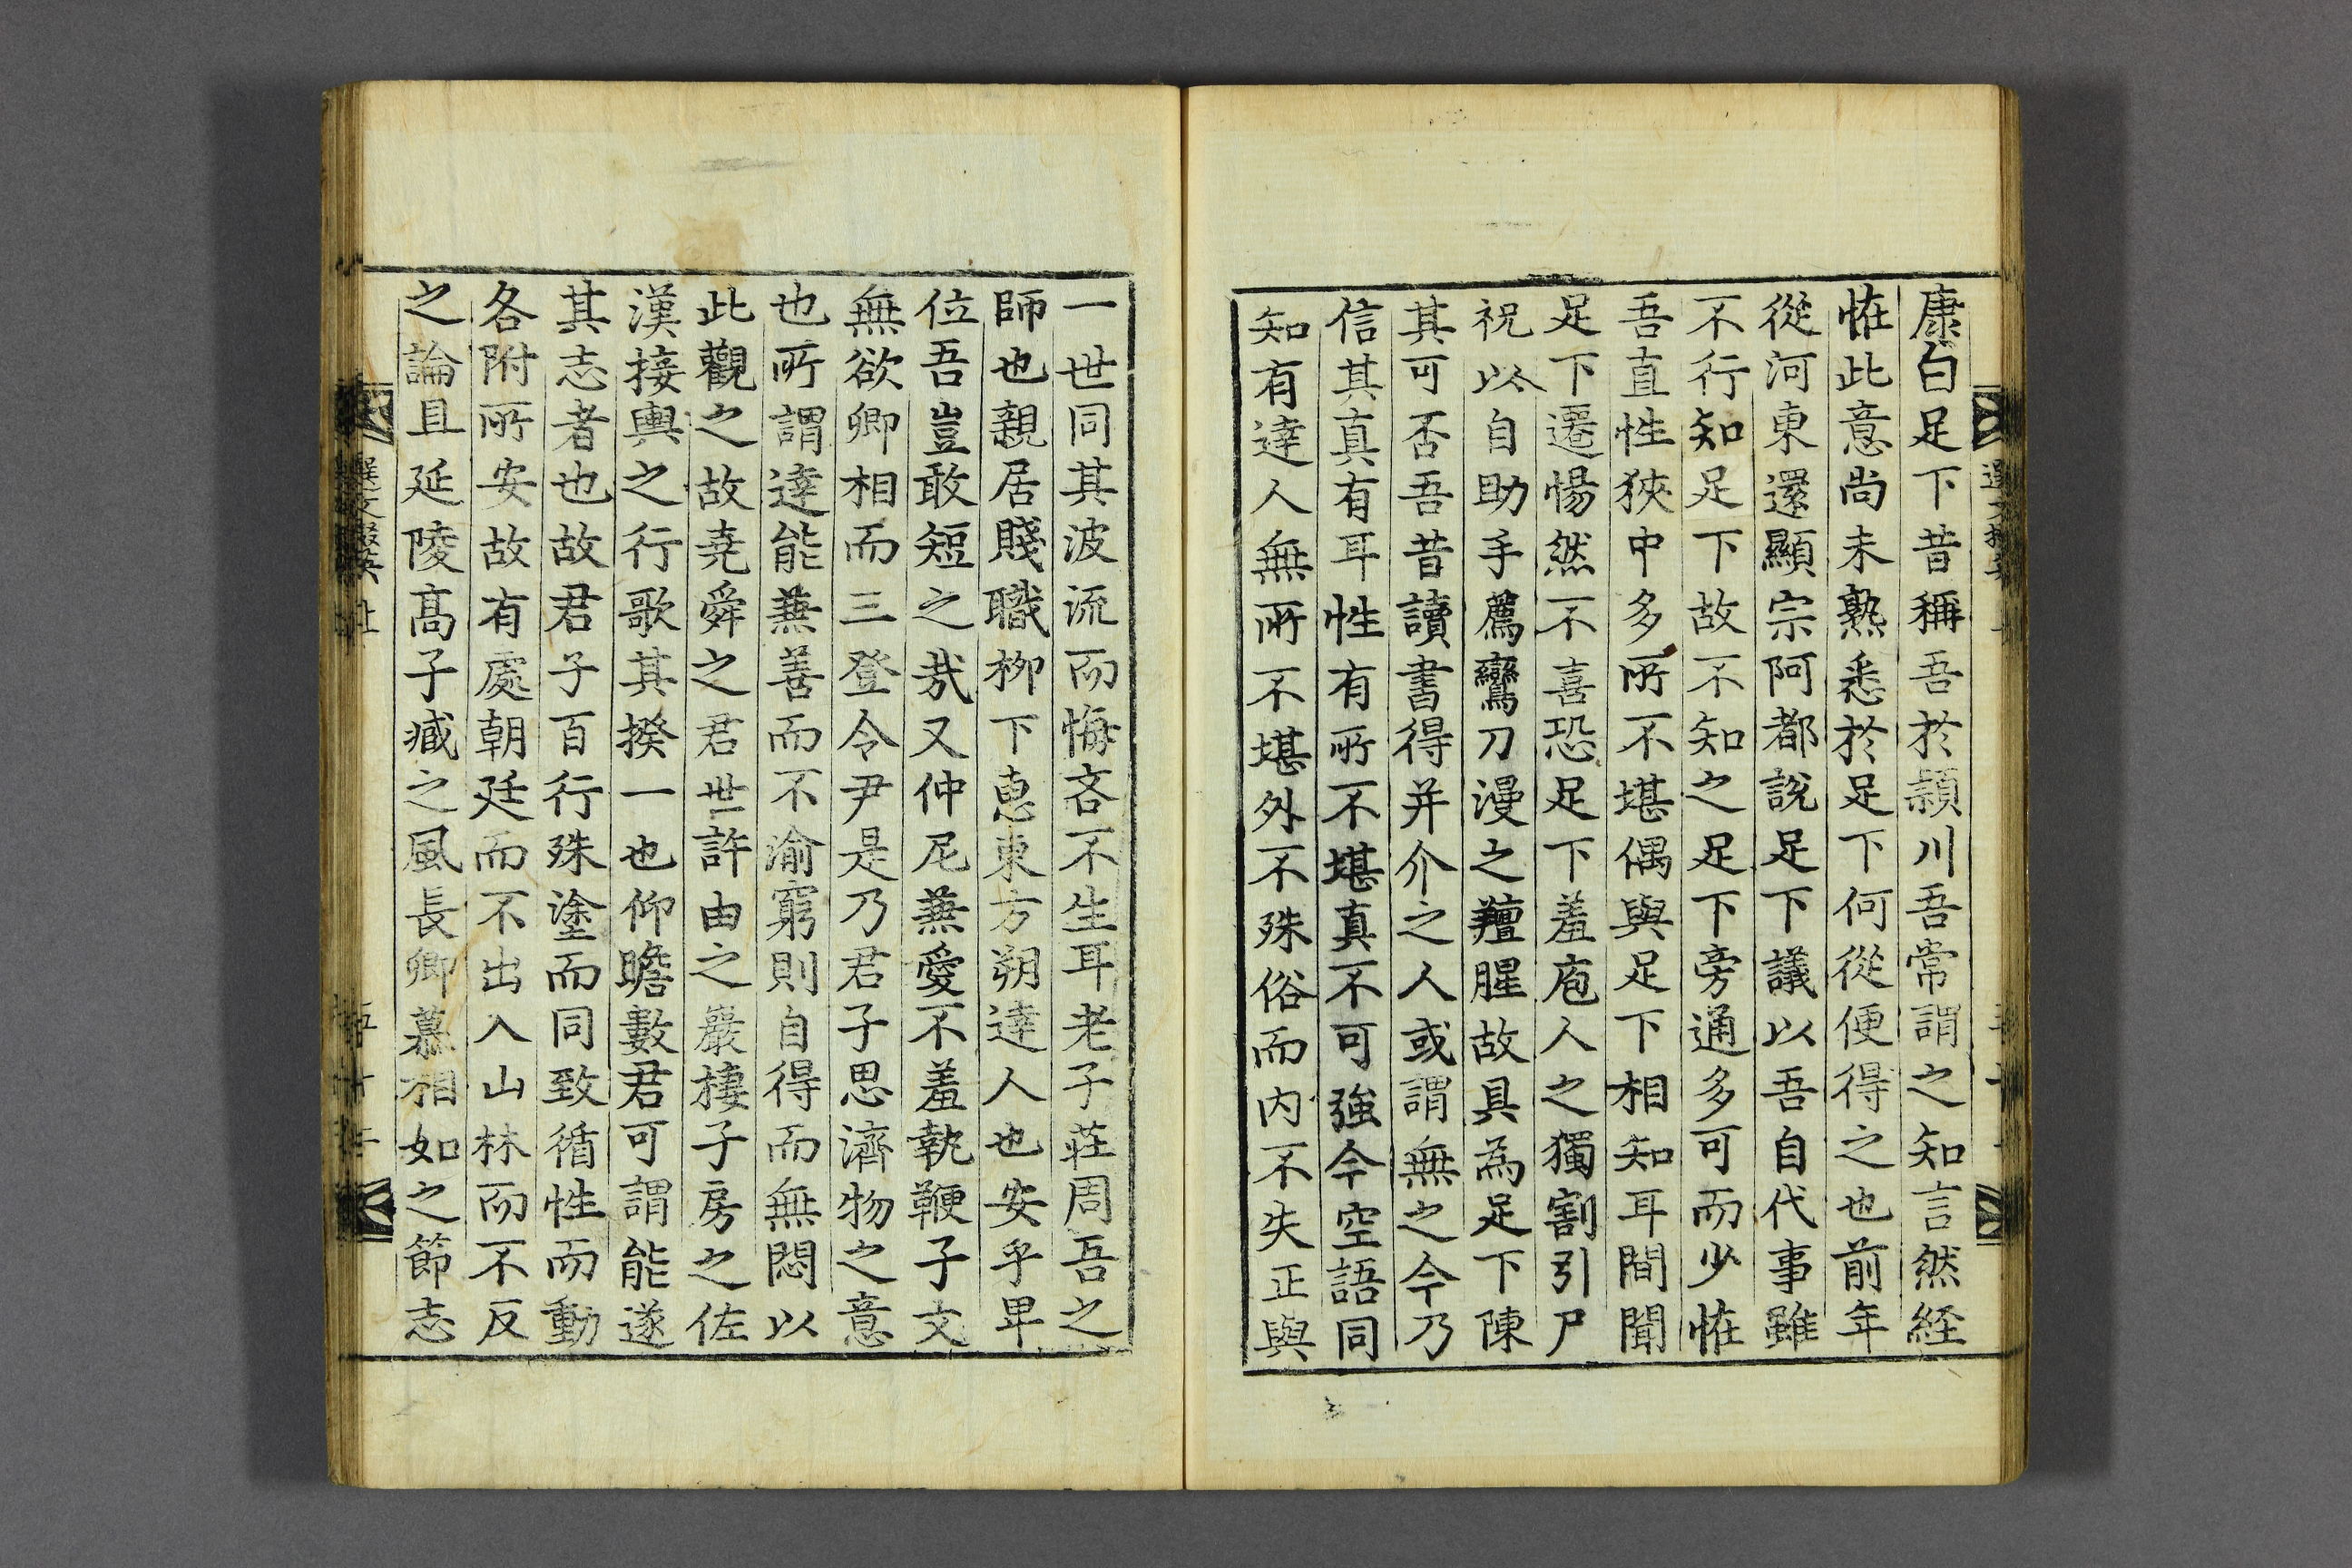 康白足下昔稱吾於潁川吾常謂之知言然経
恠此意尚未熟悉於足下何從便得之也前年
從河東還顯宗阿都說足下議以吾自代事雖
不行知足下故不知之足下旁通多可而少恠
吾直性狹中多所不堪偶與足下相知耳間聞
足下遷惕然不喜恐足下羞庖人之獨割引尸
祝以自助手薦鸞刀漫之羶腥故具為足下陳
其可否吾昔讀書得并介之人或謂無之今乃
信其真有耳性有所不堪真不可強今空語同
知有達人無所不堪外不殊俗而内不失正與
一世同其波流而悔吝不生耳老子莊周吾之
師也親居賤職柳下恵東方朔達人也安乎卑
位吾豈敢短之哉又仲尼兼愛不羞執鞭子文
無欲卿相而三登令尹是乃君子思濟物之意
也所謂達能兼善而不渝窮則自得而無悶以
此觀之故堯舜之君世許由之巖棲子房之佐
漢接輿之行歌其揆一也仰瞻數君可謂能遂
其志者也故君子百行殊塗而同致循性而動
各附所安故有處朝廷而不出入山林而不反
之論且延陵髙子臧之風長卿慕相如之節志
選文掇英